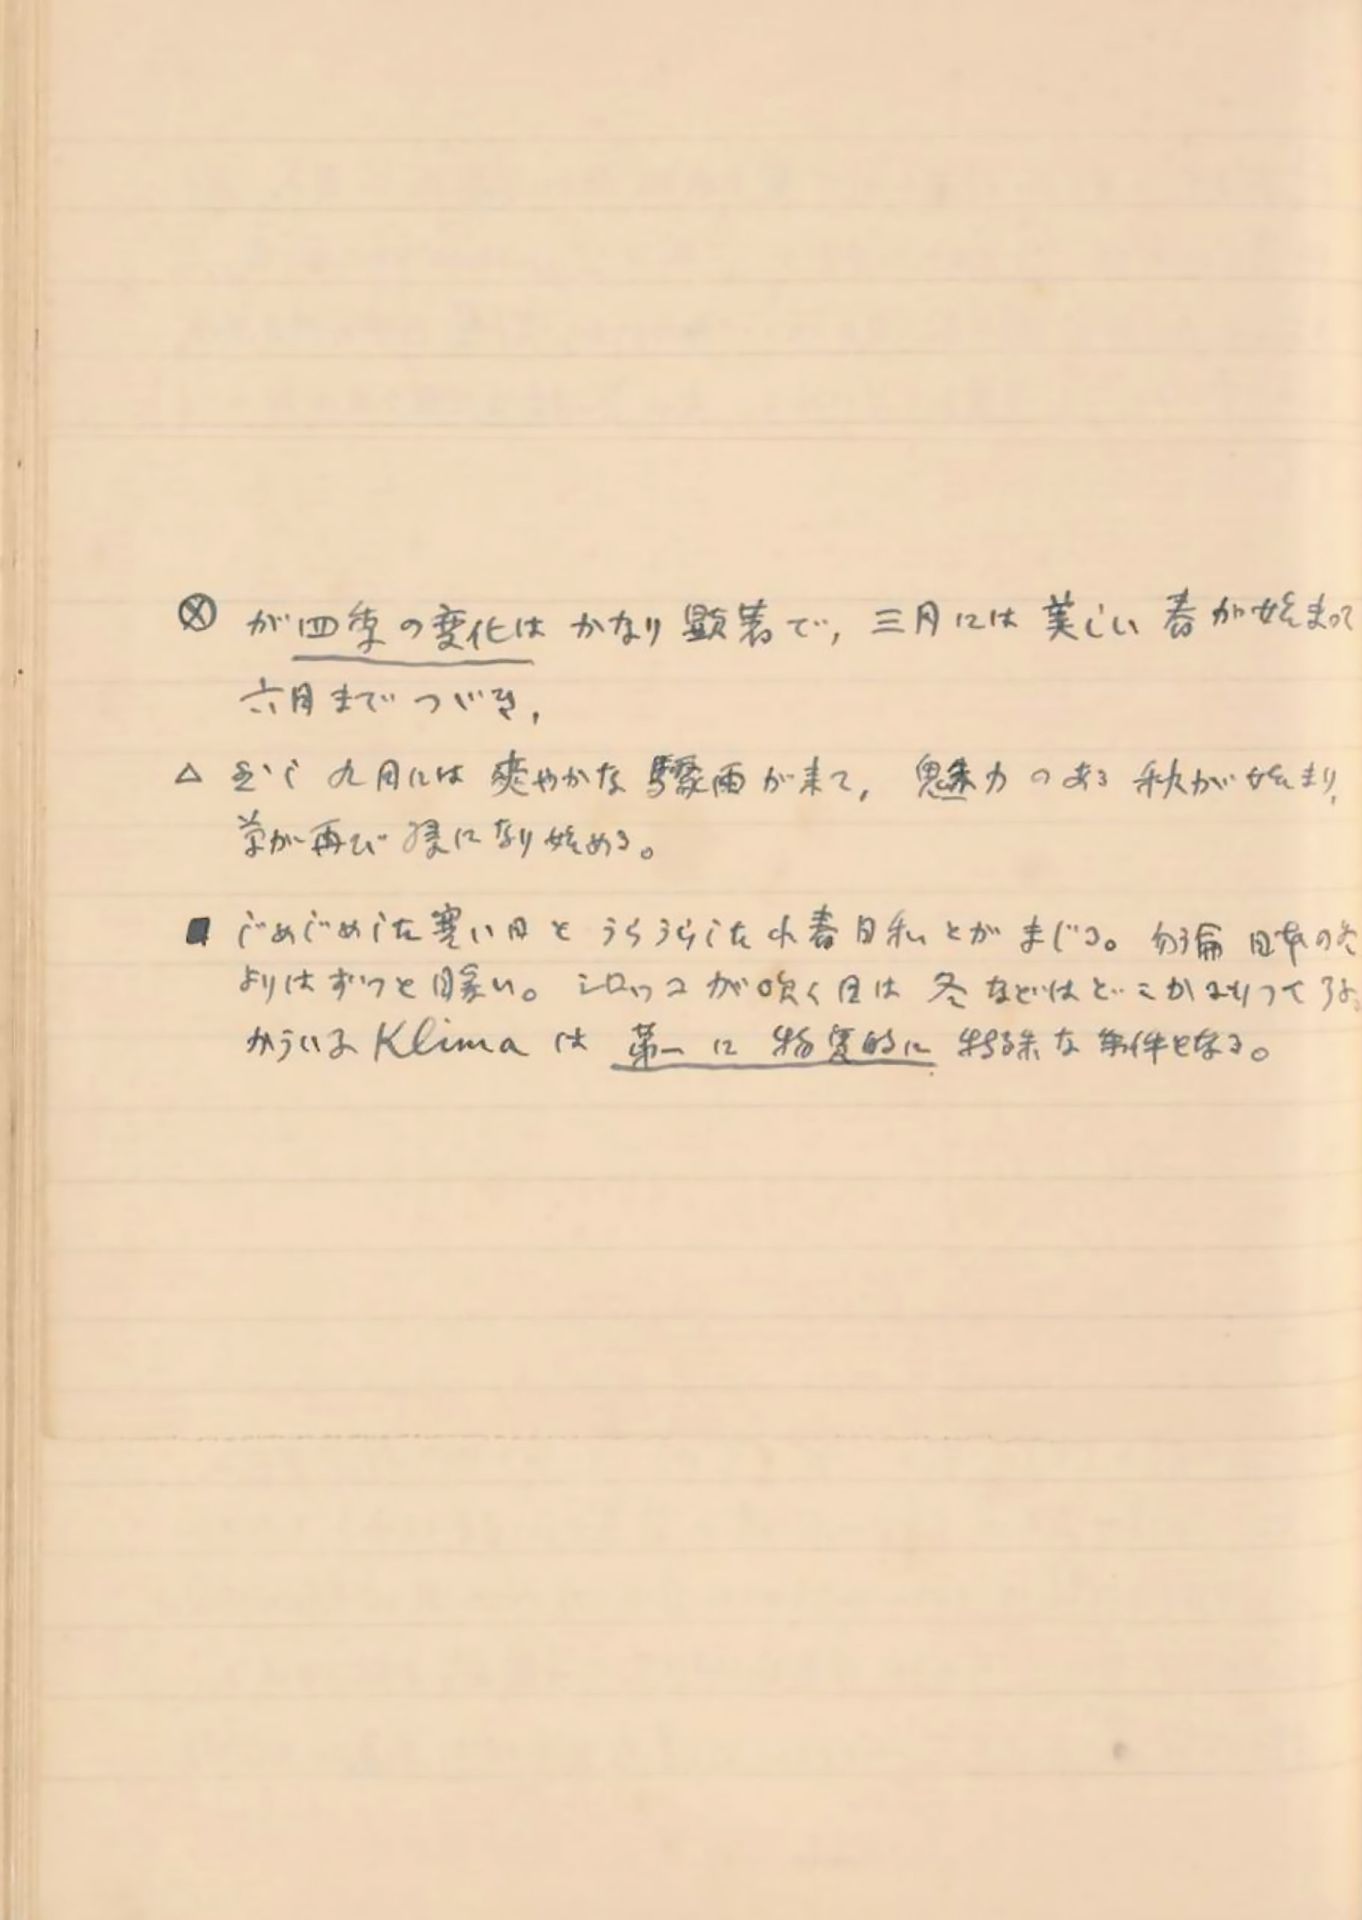 ⓧ が四季の変化は かなり顕著で、三月には 美しい 春が始まって
六月まで つづき、
△ 九月には 爽やかな 驟雨が来て、魅力のある 秋が始まり、
草が再び 緑になり始める。
■ じめじめした寒い日と うらうらした小春日和とがまじる。勿論 日本の冬
よりはずつと暖い。シロッコが吹く日は 冬などはどこか
かういふ Klima は 第一に 物質的に 特殊な 条件となる。